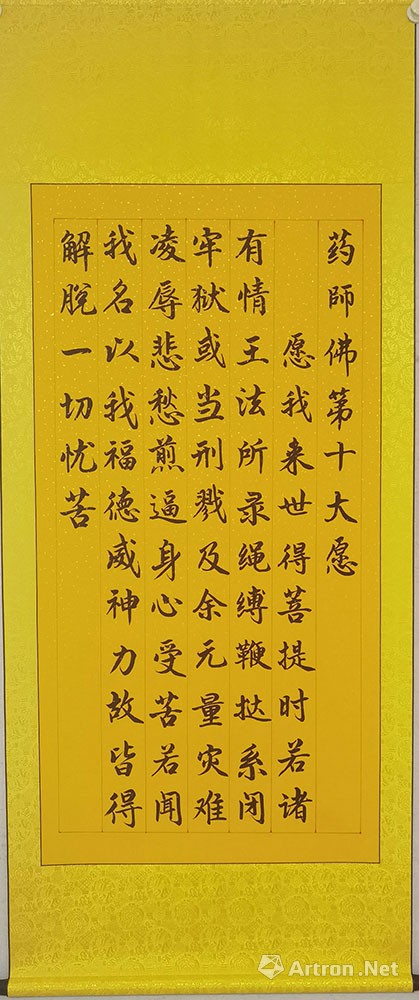 药師佛第十大愿
愿我来世得菩提时若诸
有情王法所录绳缚鞭挞系闭
牢狱或当刑戮及余元量灾难
凌辱悲愁煎逼身心受苦若闻
我名以我福德威神力故皆得
解脱一切忧苦
Artron.Net